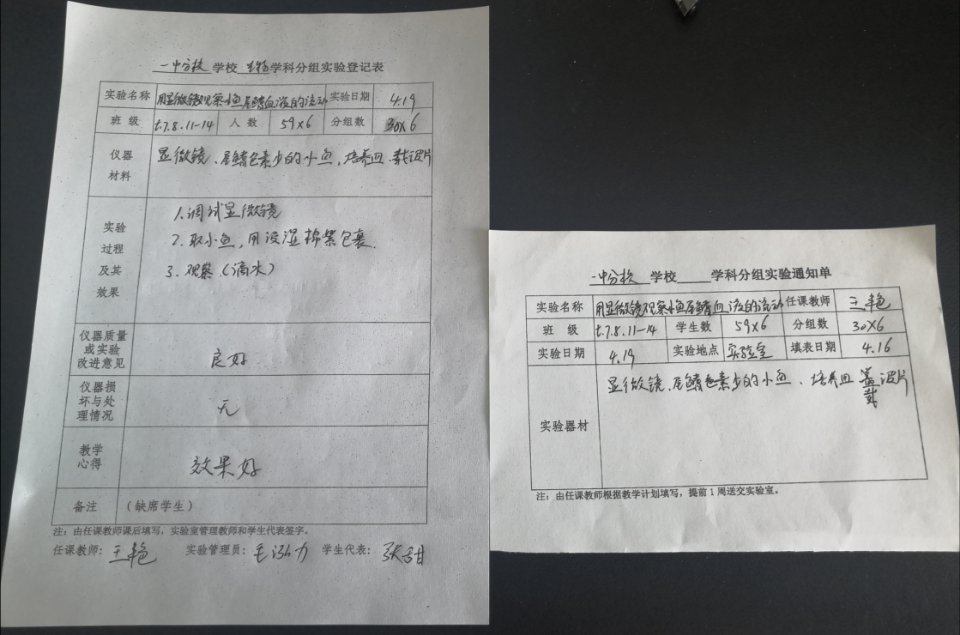 一中分校 学校 生物 学科分组实验登记表
实验名称 用显微镜观察小鱼尾鳍血液的流动 实验日期 4.19
班 级 七.7.8.11-14 人 数 59×6 分组数 30×6
仪器材料 显微镜、尾鳍色素少的小鱼,培养皿、载玻片
实验过程及其效果
1.调试显微镜
2.取小鱼,用浸湿棉絮包裹.
3.观察(滴水)
仪器质量或实验改进意见 良好
仪器损坏与处理情况 无
教学心得 效果好
备注 (缺席学生)
注:由任课教师课后填写,实验室管理教师和学生代表签字。
任课教师:王艳 实验管理员:毛 力 学生代表:张甜
一中分校 学校 学科分组实验通知单
实验名称 用显微镜观察小鱼尾鳍血液的流动 任课教师 王艳
班 级 七.7.8.11-14 学生数 59×6 分组数 30×6
实验日期 4.19 实验地点 实验室 填表日期 4.16
实验器材 显微镜、尾鳍色素少的小鱼、培养皿 盖玻片
载
注:由任课教师根据教学计划填写,提前1周送交实验室。